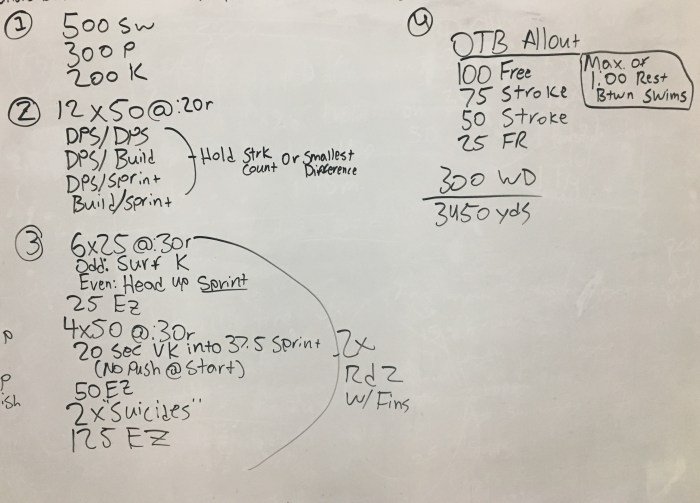 ① 500 SW
300 P
200 K
② 12x50@:20r
DPS/DPS
DPS/Build
DPS/Sprint
Build/Sprint
Hold Strk Count or Smallest Difference
③ 6x25@:30r
Odd: Surf K
Even: Head up Sprint
25 Ez
4x50@:30r
20 sec VK into 37.5 Sprint
(No Push @ Start)
50 EZ
2x"Suicides"
125 EZ
2x
Rd 2
W/ Fins
④
OTB Allout
100 Free
75 Stroke
50 Stroke
25 FR
Max. of
1:00 Rest
Btwn Swims
300 WD
3450 yds
p
p
ish